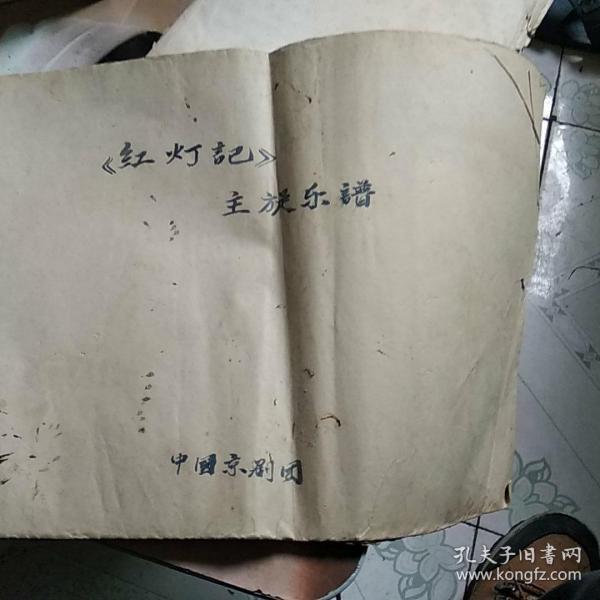 《紅灯記》
主旋乐譜
中國京剧团
孔夫子旧書网
www.kongfz.com